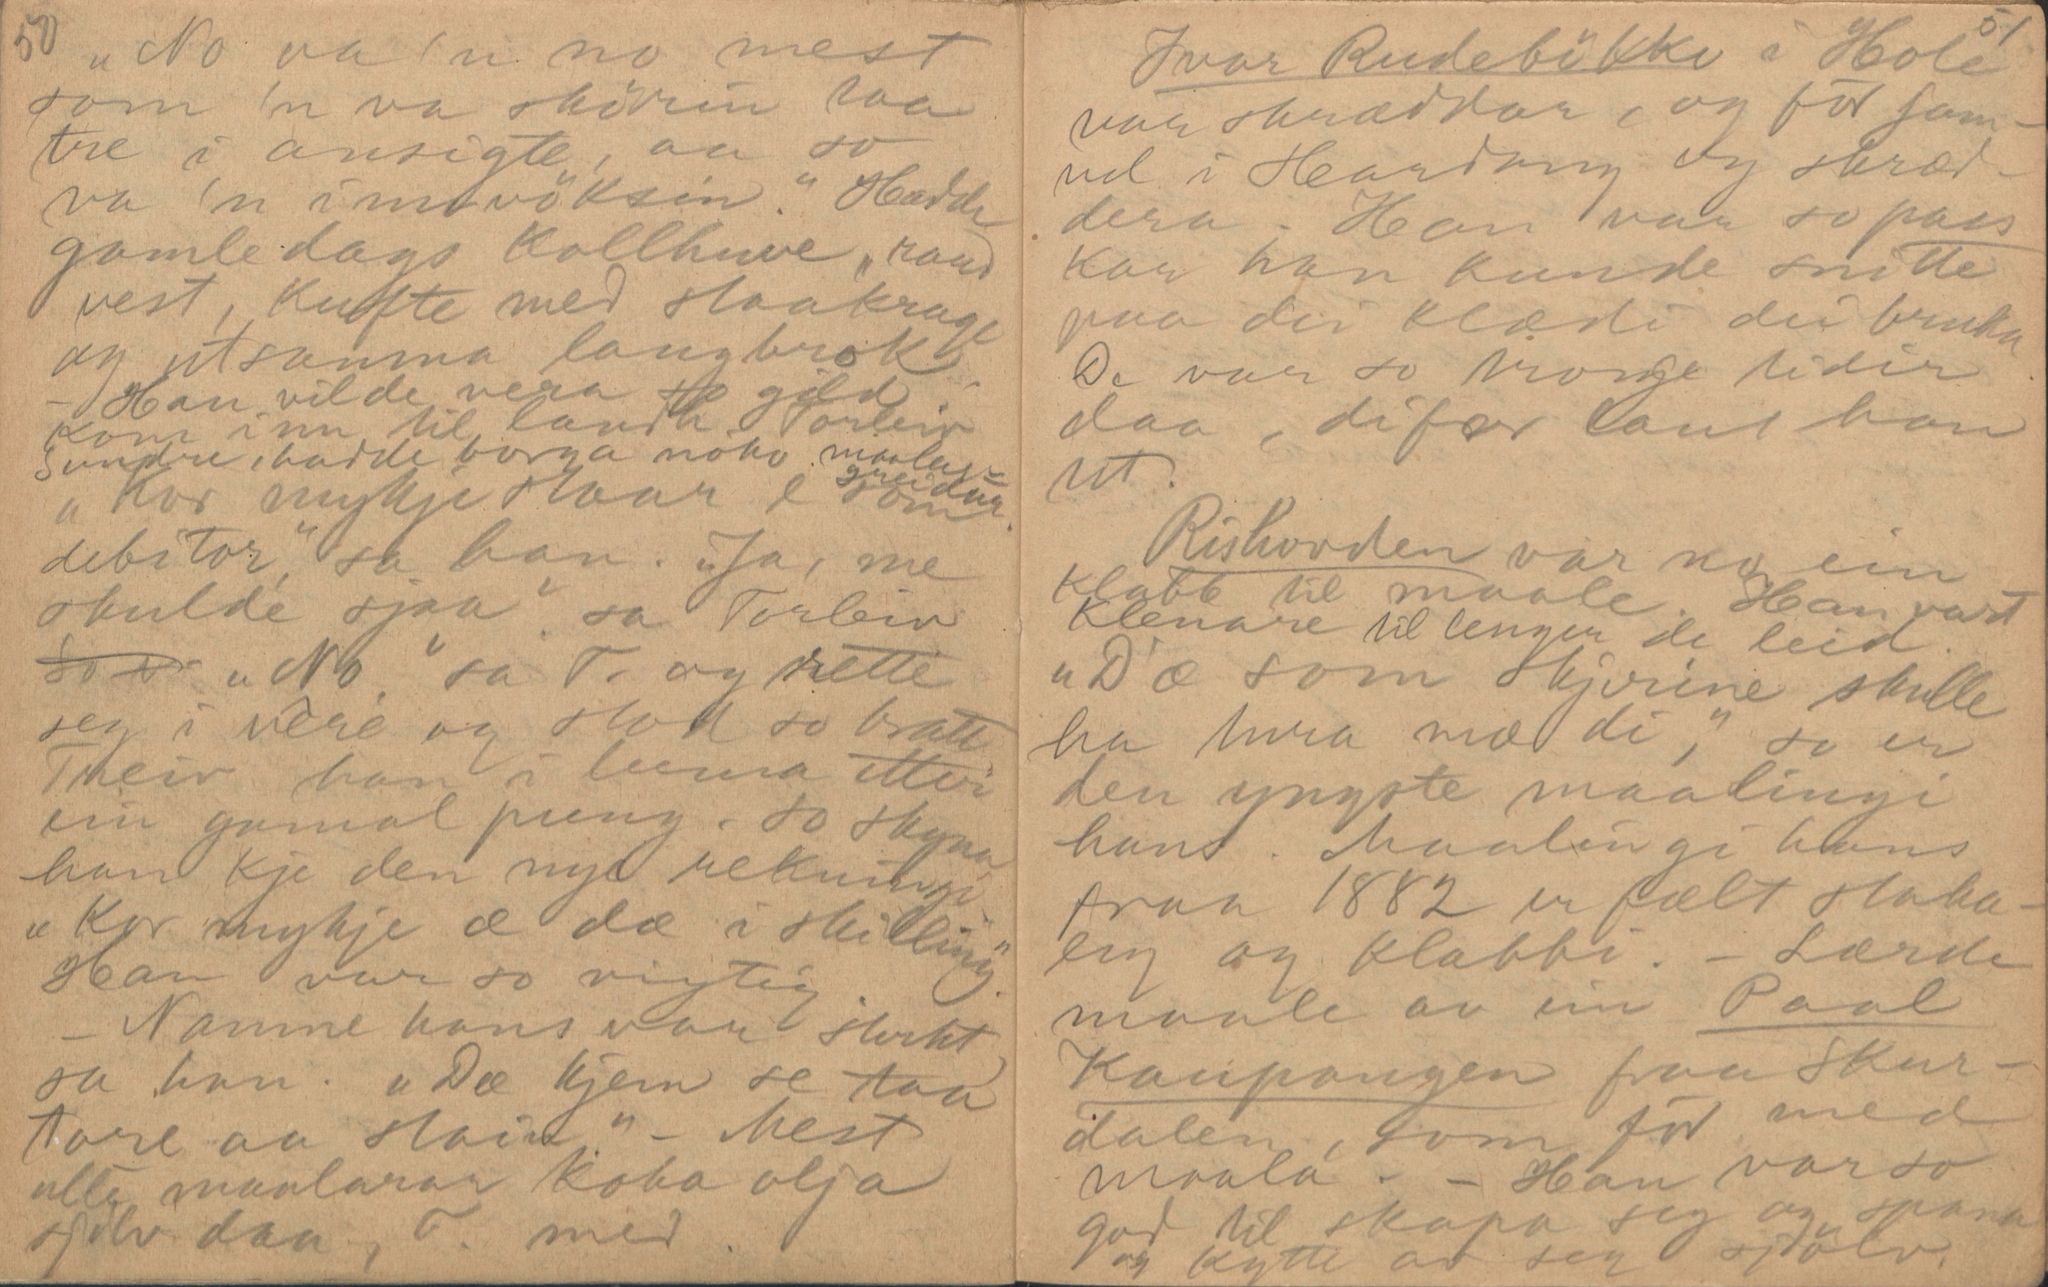 50
„No va 'n no mest
som 'n va skörin taa
tre i ansigte, aa so
va 'n innvöksin." Hadde
gamledags Kollhuve, rand
vest, Kufte med staakrage
og utsauma langbrok
- Han vilde vera so gild.
Kom inn til landh. Torleiv
Sundre, hadde borga noko maalar-
greidur.
„Kor mykje staar e som
debitor," sa han. „Ja, me
skulde sjaa" sa Torleiv
„No," sa T. og rette
seg i vere og stod so bratt
Treiv han i lumma etter
ein gamal pung. So skyna
han kje den nye rekningi
„Kor mykje æ dæ i skilling".
Han var so vigtig.
- Namne hans var sterkt,
sa han. „Dæ kjem se taa
tore aa stein" - Mest
alle maalarar koka olja
sjölv daa, T. med.
51
Ivar Rudebökke i Hole
var skræddar, og för jam-
vel i Hardang og skræd-
dera. Han var so pass
kar han kunde snitte
paa dei klædi dei bruka
De var so tronge tidir
daa, difor laut han
ut.
Riskovden var no ein
klabb til maale. Han vart
klenare til lenger de leid.
„D'æ som skjerine skulle
ha tura mæ di," so er
den yngste maalingi
hans. Maalingi hans
fraa 1882 er fælt staka-
leg og klabbi. - Lærde
maale av ein Paal
Kaupangen fraa Skur-
dalen, som för med
maala. - Han var so
god til skapa seg og spana
og kytte av seg sjölv.